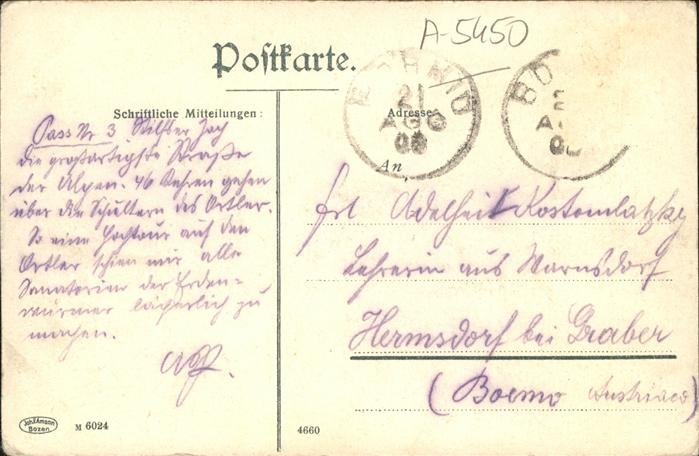 A-5450
Postkarte.
BORMIO
21
AGO
08
BO
2
A
0
Schriftliche Mitteilungen:
Adresse
An
Pass Nr 3 Stilfser Joch
die großartigste Straße
der Alpen. 46 Kehren gehen
über die Schultern des Ortler.
So eine Hochtour auf den
Ortler schien mir alle
Sanatorien der Erden-
würmer lächerlich zu
machen.
Frl Adelheid Kostomlatzky
Lehrerin aus Warnsdorf
Hermsdorf bei Graber
(Boemo Austriaco)
Joh. F. Amonn
Bozen
M 6024
4660